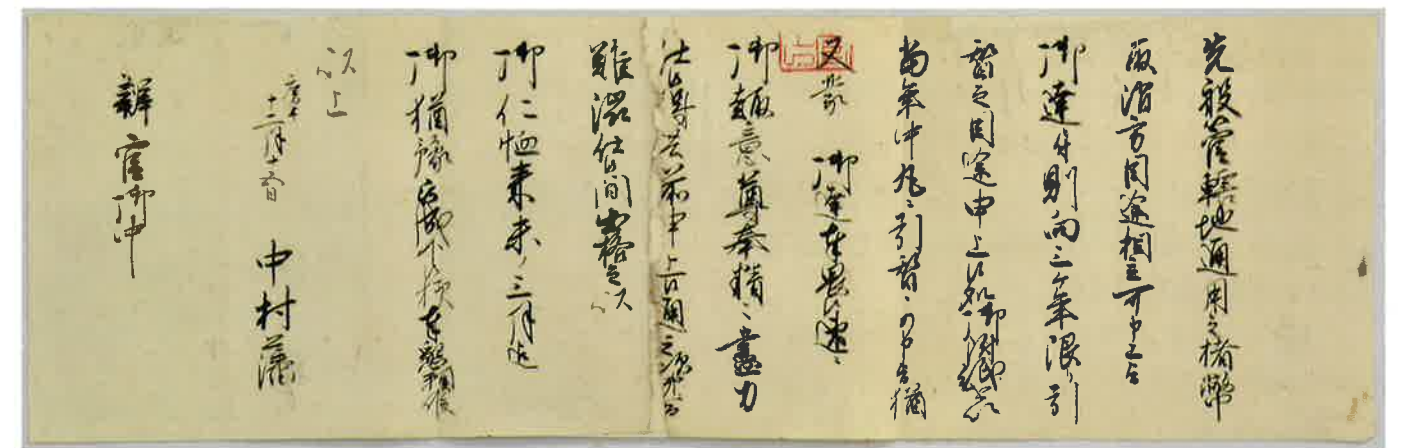 先般管轄地通用之楮幣
取消方用途相立可申上旨
御達ニ付則向三ヶ年限リ引
替之用途申上候処御
当年中九ニ引替ニ可申旨猶
又蒙 御達奉畏
御趣意尊奉精々尽力
仕候得共前申上候通之次第ニ而
難渋仕候間出格之以
御仁恤来未ノ三月迄
御猶予被成下候様奉懇願候
以上
十二月十五日 中村藩
辨官御中